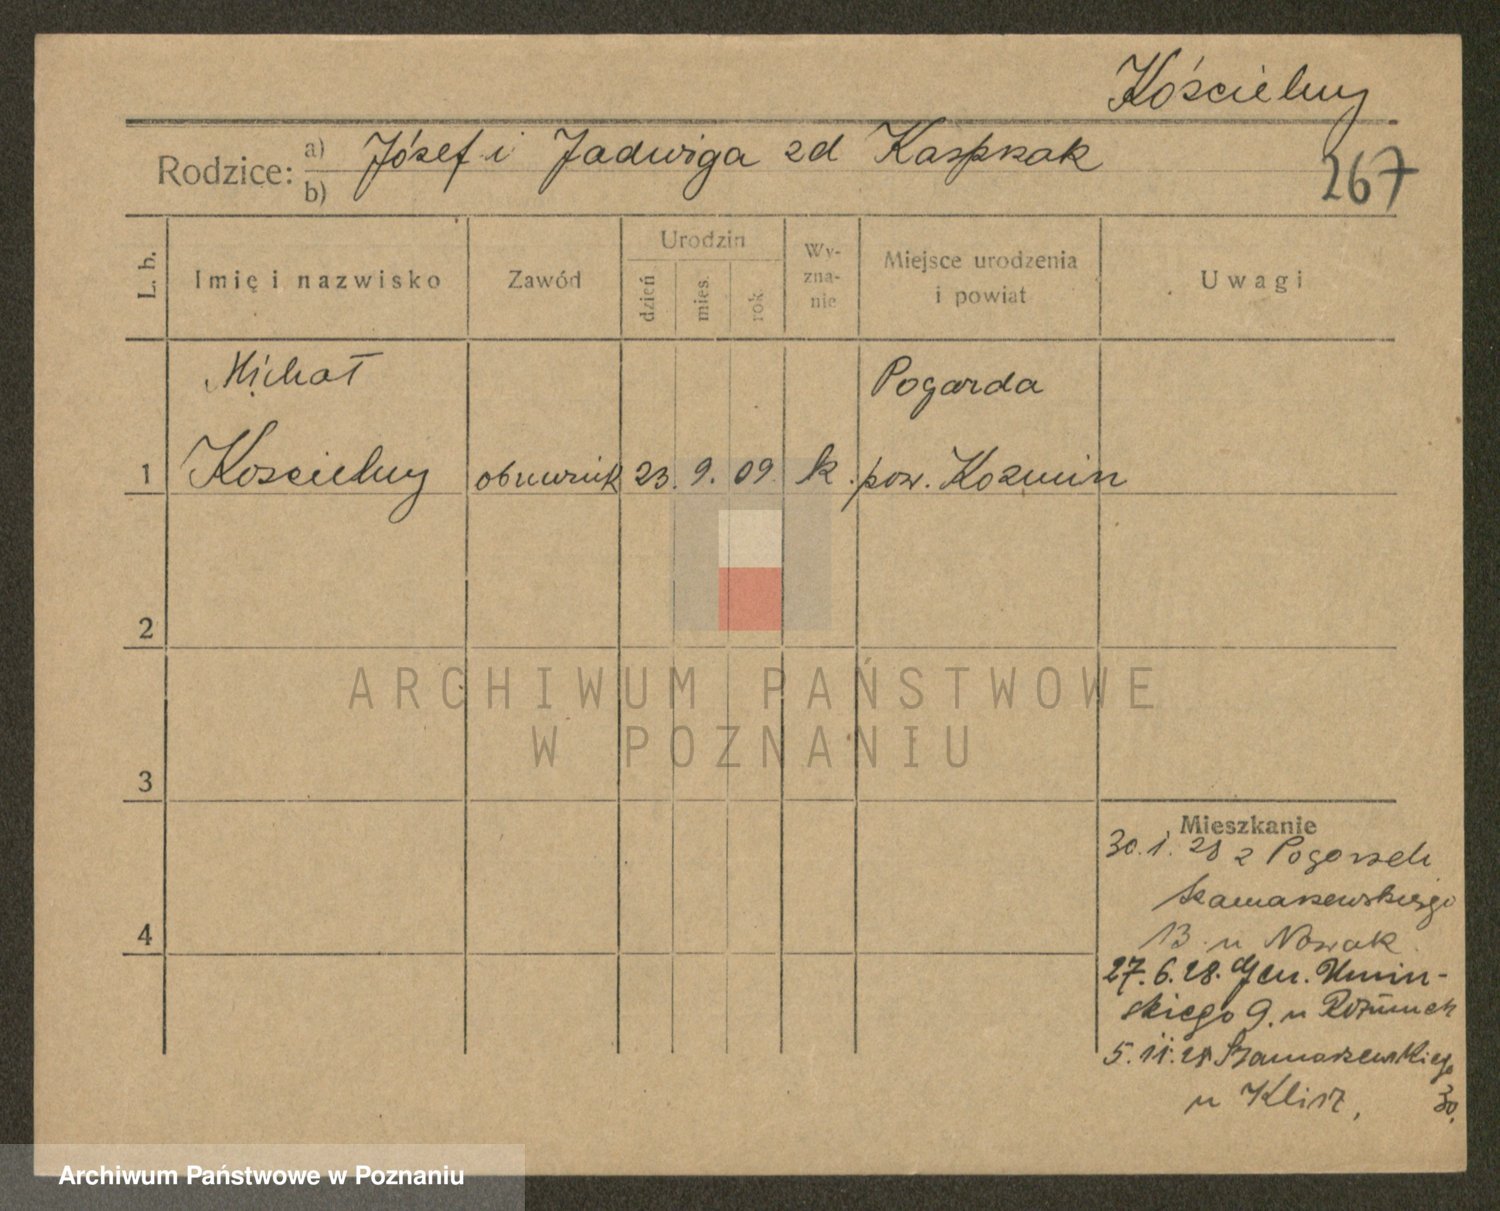 Kościelny
Rodzice: a) Józef i Jadwiga zd Kaspzak
b)
267
L. b.
Imię i nazwisko
Zawód
Urodzin
dzień
mies.
rok
Wy-
zna-
nie
Miejsce urodzenia
i powiat
Uwagi
Michał
Pogarda
1 Koscielny obuwnik 23. 9. 09. k. pow. Kozmin
2
ARCHIWUM PAŃSTWOWE
W POZNANIU
3
Mieszkanie
30.1.28 z Pogorzeli
Szamarzewskiego
4
13 u Nowak
27.6.28. Gen. Umin-
skiego 9. u
5.11.28 Szamarzewskiego
u 30.
Archiwum Państwowe w Poznaniu